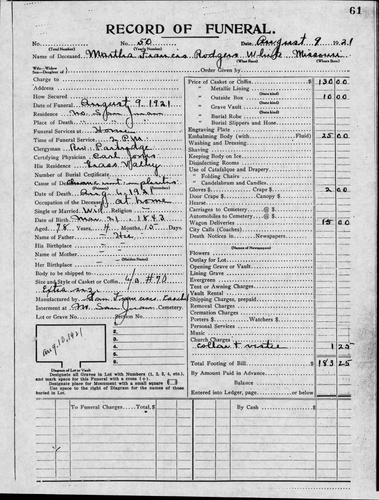 61
RECORD OF FUNERAL.
No. No. 50 Date August 9 1921
(Total Number) (Yearly Number)
Name of Deceased Martha Francis Rodgers White Missouri
(What Race) (Where Born)
Order Given by
Charge to
Address
How Secured
Date of Funeral August 9, 1921
Residence No. San Juan
Funeral Services at Home
Time of Funeral 2 P.M.
Clergyman Rev.
Certifying Physician Carl
His Residence
Number of Burial Certificate
Cause of Death
Date of Death Aug 1921
Occupation of the Deceased at home
Single or Married Wid. Religion
Date of Birth Mar. 21 1843
Aged 78 Years 4 Months 15 Days
Name of Father
His Birthplace
Name of Mother
Her Birthplace
Body to be shipped to
Size and Style of Casket or Coffin 6/0 #70
Extra size
Manufactured by San Francisco Casket
Interment at San Juan Cemetery
Lot or Grave No. Section No.
Aug. 10, 1921
Diagram of Lot or Vault
Designate all Graves in Lot with Numbers (1, 2, 3, 4, etc.),
and mark space for this Funeral with a cross (x).
Designate place for Monument with a small square
Use space to the right of Diagram for the names of those
buried in Lot.
Price of Casket or Coffin $ 130 00
" Metallic Lining
" Outside Box 10 00
(State kind)
" Grave Vault
(State kind)
" Burial Robe
(State kind)
" Burial Slippers and Hose
Engraving Plate
Embalming Body (with Fluid) 25 00
Washing and Dressing
Shaving
Keeping Body on Ice
Disinfecting Rooms
Use of Catafalque and Drapery
" Folding Chairs
" Candelabrum and Candles
Gloves $ 2 00
Door Crape $ Candy
Hearse
Carriages to Cemetery @ $
Automobiles to Cemetery @ $
Wagon Deliveries 15 00
City Calls (Coaches)
Death Notices in Newspapers
(Names of Newspapers)
Flowers
Outlay for Lot
Opening Grave or Vault
Lining Grave
Evergreen
Tent or Awning Charges
Vault Rental
Shipping Charges, prepaid
Removal Charges
Cremation Charges
Porters $ Watchers $
Personal Services
Music
Church Charges
collar + 1 25
Total Footing of Bill $ 183 25
By Amount Paid in Advance
Balance
Entered into Ledger, page or below
To Funeral Charges Total, $ By Cash $